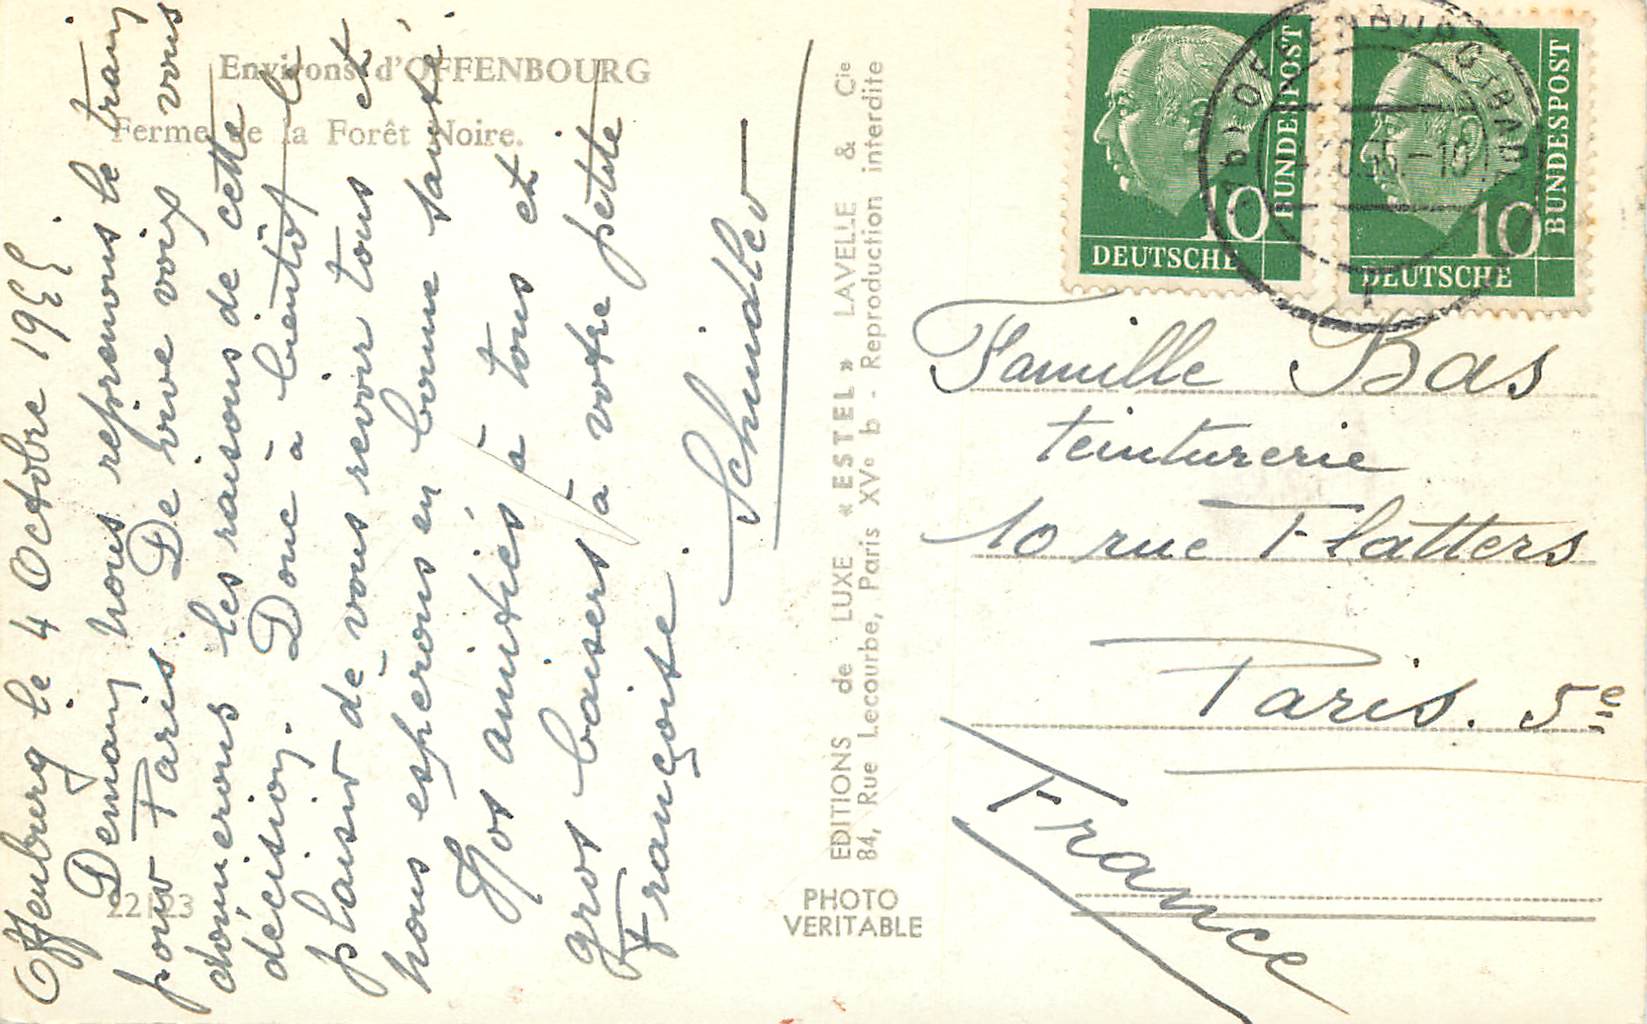 Environs d'OFFENBOURG
Ferme de la Forêt Noire.
Offenburg le 4 Octobre 1955.
Demain nous reprenons le train
pour Paris. De vive voix vous
donnerons les raisons de cette
décision. Donc à bientôt le
plaisir de vous revoir tous et
nous espérons en bonne santé.
Nos amitiés à tous et
gros baisers à votre petite
Françoise.
Schindler
22123
EDITIONS de LUXE « ESTEL » LAVELLE & Cie
84, Rue Lecourbe, Paris XVe b - Reproduction interdite
PHOTO
VERITABLE
DEUTSCHE
BUNDESPOST
10
DEUTSCHE
BUNDESPOST
10
OFFENBURG (BADEN)
Famille Bas
teinturerie
10 rue Flatters
Paris. 5e
France